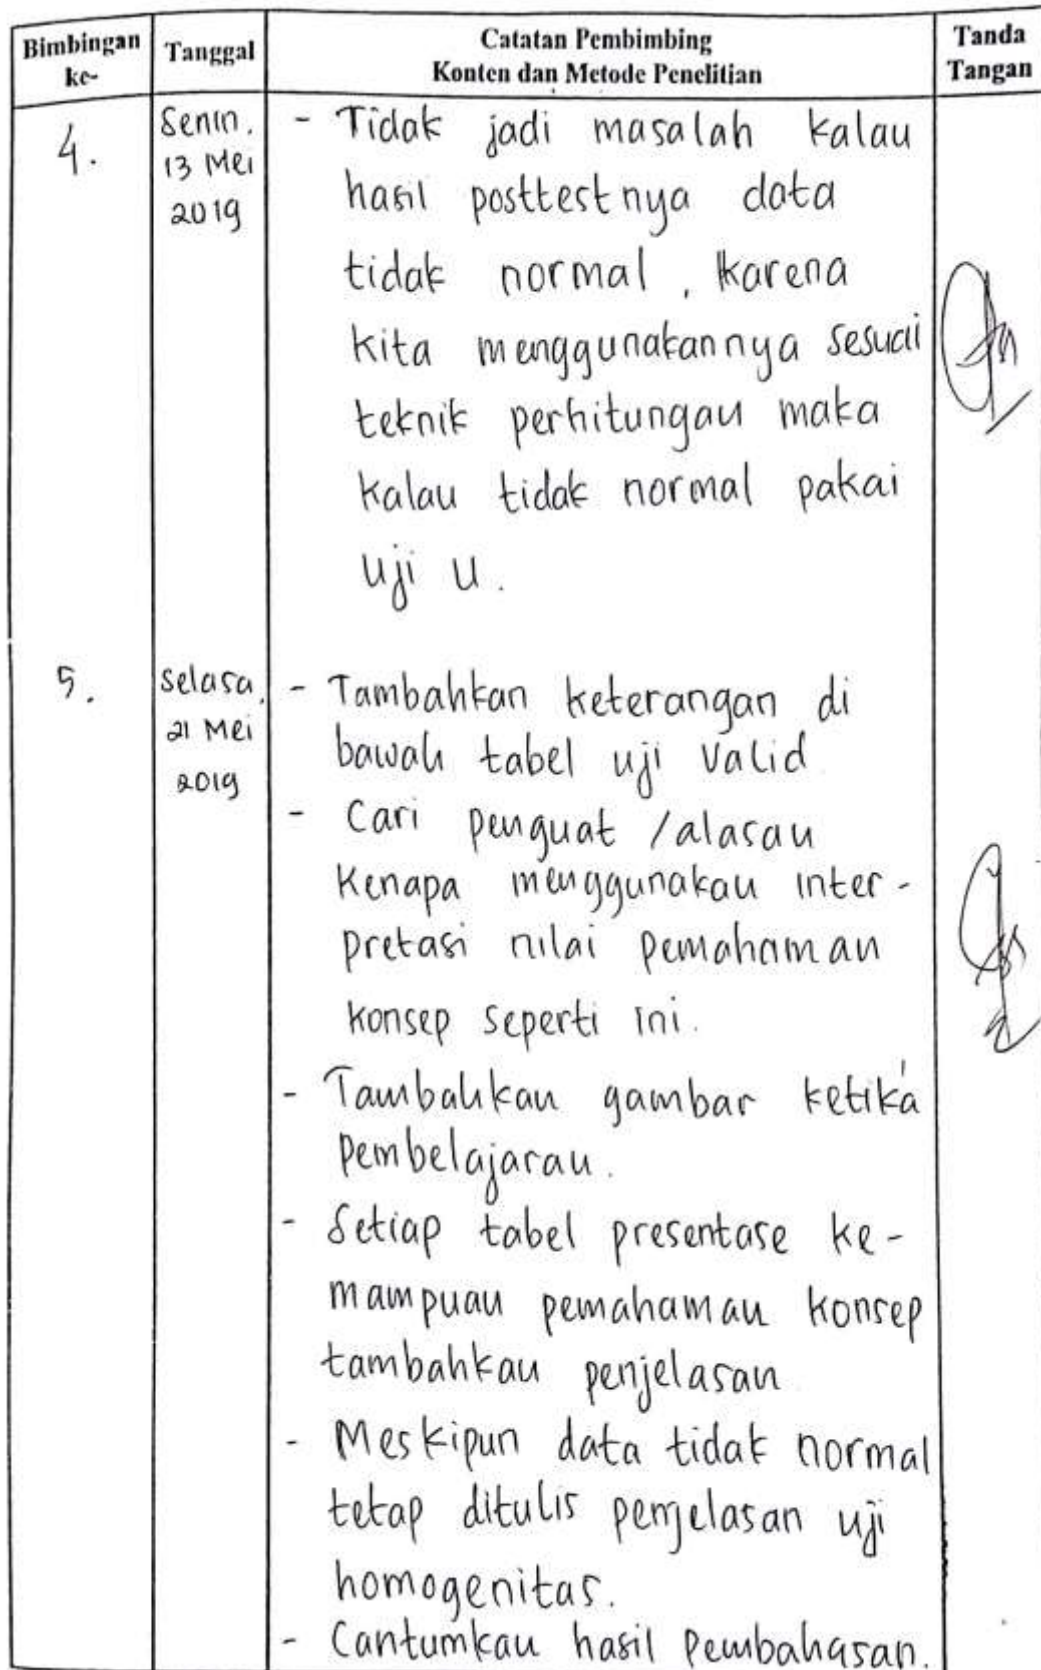 Bimbingan ke- Tanggal Catatan Pembimbing Konten dan Metode Penelitian Tanda Tangan
4. Senin, 13 Mei 2019
- Tidak jadi masalah kalau
hasil posttestnya data
tidak normal, karena
kita menggunakannya sesuai
teknik perhitungan maka
kalau tidak normal pakai
uji u.
5. Selasa, 21 Mei 2019
- Tambahkan keterangan di
bawah tabel uji valid
- Cari penguat /alasan
kenapa menggunakan inter-
pretasi nilai pemahaman
konsep seperti ini.
- Tambahkan gambar ketika
pembelajaran.
- Setiap tabel presentase ke-
mampuan pemahaman konsep
tambahkan penjelasan
- Meskipun data tidak normal
tetap ditulis penjelasan uji
homogenitas.
- Cantumkan hasil pembahasan.